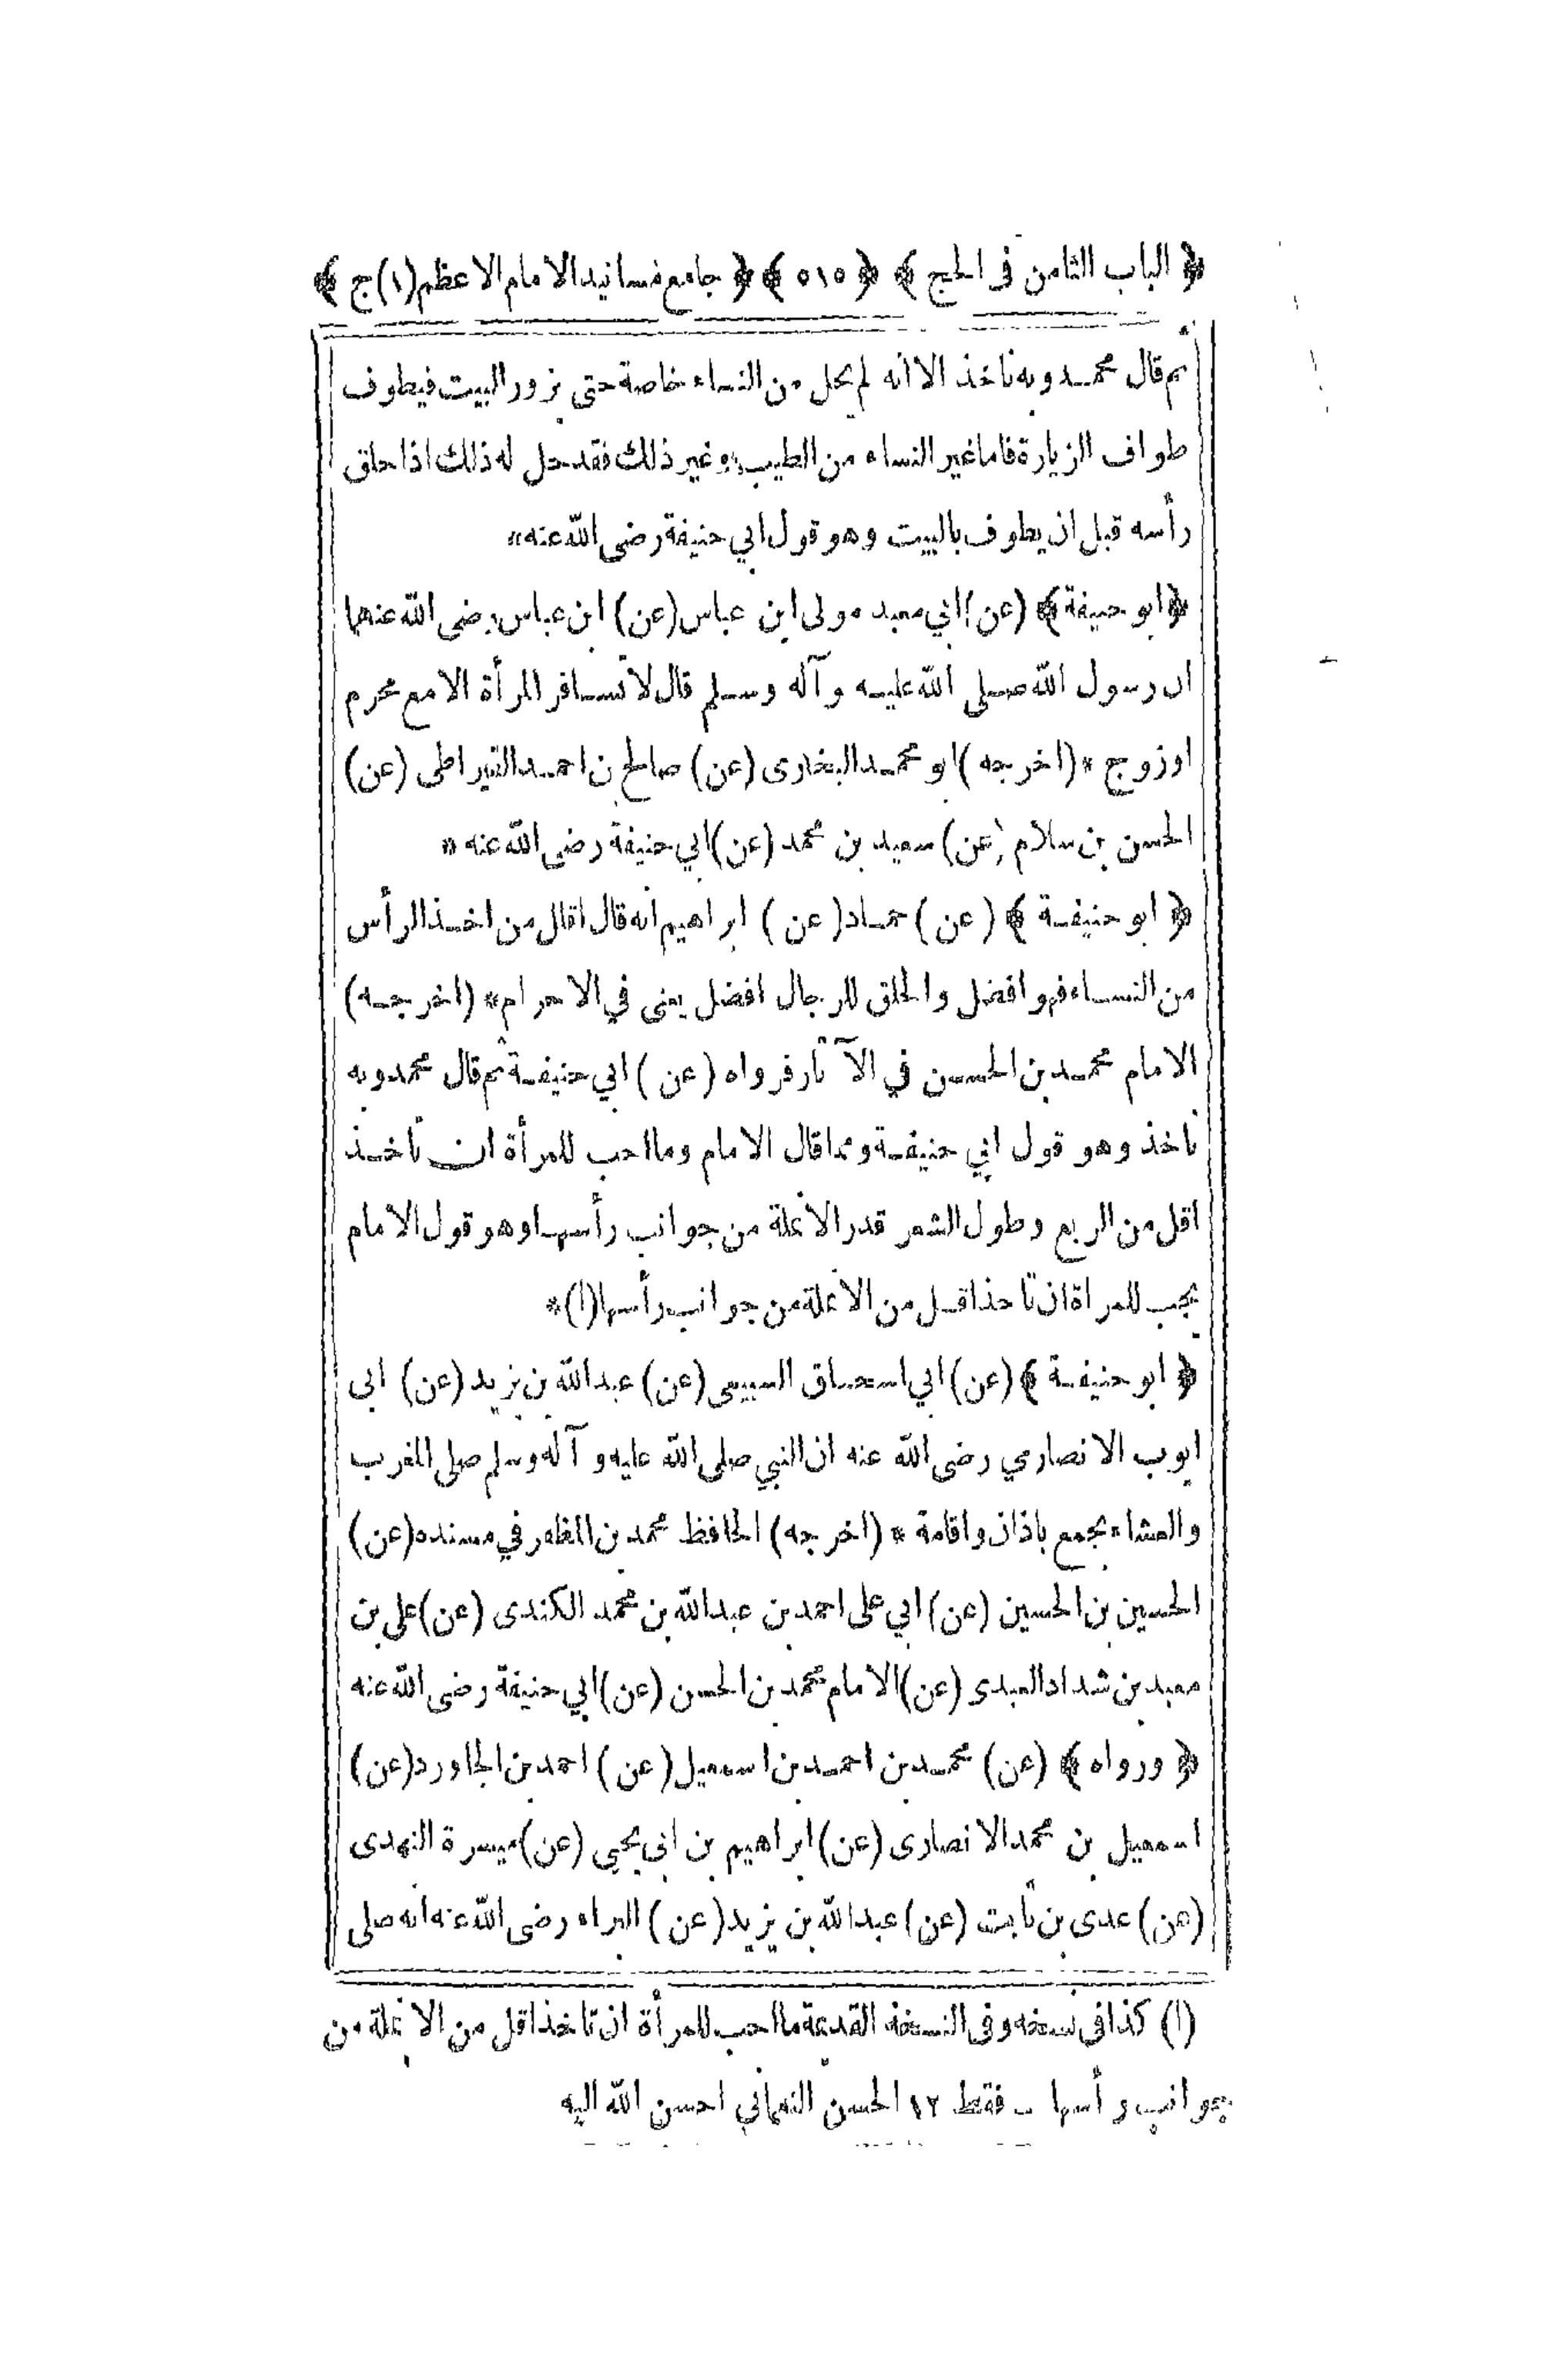 ﴿ الباب الثامن فى الحج ﴾ ﴿ ٥١٥ ﴾ ﴿ جامع مسانيد الامام الاعظم (١) ج ﴾
ثم قال محمد وبه ناخذ الا انه لم يحل من النساء خاصة حتى يزور البيت فيطوف
طواف الزيارة فاما غير النساء من الطيب وغير ذلك فقد حل له ذلك اذا حلق
رأسه قبل ان يطوف بالبيت وهو قول ابي حنيفة رضى الله عنه *
﴿ ابو حنيفة ﴾ (عن) ابي معبد مولى ابن عباس (عن) ابن عباس رضى الله عنهما
ان رسول الله صلى الله عليه وآله وسلم قال لا تسافر المرأة الا مع محرم
او زوج * (اخرجه) ابو محمد البخارى (عن) صالح بن احمد القيراطى (عن)
الحسن بن سلام (عن) سعيد بن محمد (عن) ابي حنيفة رضى الله عنه *
﴿ ابو حنيفة ﴾ (عن) حماد (عن) ابراهيم انه قال اقال من اخذ الرأس
من النساء فهو افضل والحلق للرجال افضل يعنى في الاحرام * (اخرجه)
الامام محمد بن الحسن في الآثار فرواه (عن) ابي حنيفة ثم قال محمد وبه
ناخذ وهو قول ابي حنيفة ومما قال الامام وما احب للمرأة ان تاخذ
اقل من الربع وطول الشعر قدر الانملة من جوانب رأسها وهو قول الامام
يجب للمراة ان تاخذ اقل من الانملة من جوانب رأسها (١) *
﴿ ابو حنيفة ﴾ (عن) ابي اسحاق السبيعى (عن) عبد الله بن يزيد (عن) ابى
ايوب الانصاري رضى الله عنه ان النبي صلى الله عليه وآله وسلم صلى المغرب
والعشاء بجمع باذان واقامة * (اخرجه) الحافظ محمد بن المظفر في مسنده (عن)
الحسين بن الحسين (عن) ابي على احمد بن عبد الله بن محمد الكندى (عن) على بن
معبد بن شداد العبدى (عن) الامام محمد بن الحسن (عن) ابي حنيفة رضى الله عنه
﴿ ورواه ﴾ (عن) محمد بن احمد بن اسمعيل (عن) احمد بن الجاورد (عن)
اسمعيل بن محمد الانصارى (عن) ابراهيم بن ابى يحيى (عن) ميسرة النهدى
(عن) عدى بن ثابت (عن) عبد الله بن يزيد (عن) البراء رضى الله عنه انه صلى
(١) كذا فى نسخه وفى النسخة القديمة ما احب للمرأة ان تاخذ اقل من الانملة من
جوانب رأسها ـ فقط ١٢ الحسن النعماني احسن الله اليه